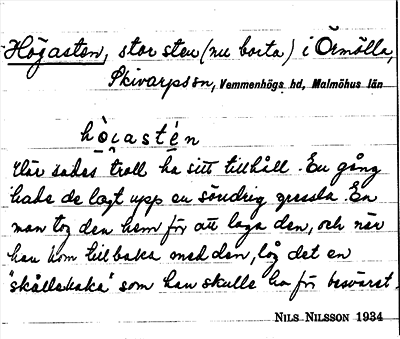 Höjasten, stor sten (nu borta) i Örmölla,
Skivarpssn, Vemmenhögs hd, Malmöhus län
hòi̯astén
Här sades troll ha sitt tillhåll. En gång
hade de lagt upp en söndrig gressla. En
man tog den hem för att laga den, och när
han kom tillbaka med den, låg det en
"skållekaka" som han skulle ha för besväret.
NILS NILSSON 1934